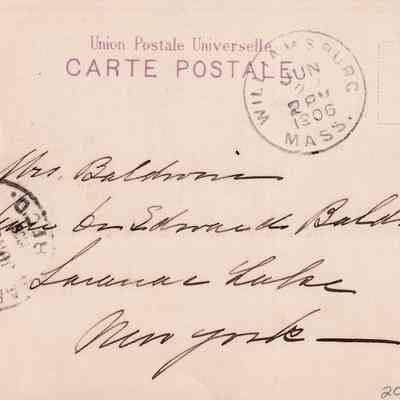 Union Postale Universelle
CARTE POSTALE
WILLIAMSBURG
JUN
2 PM
1906
MASS.
Mrs. Baldwin
Dr. Edwards Bald
Saranac Lake
New York
REC'D.
20